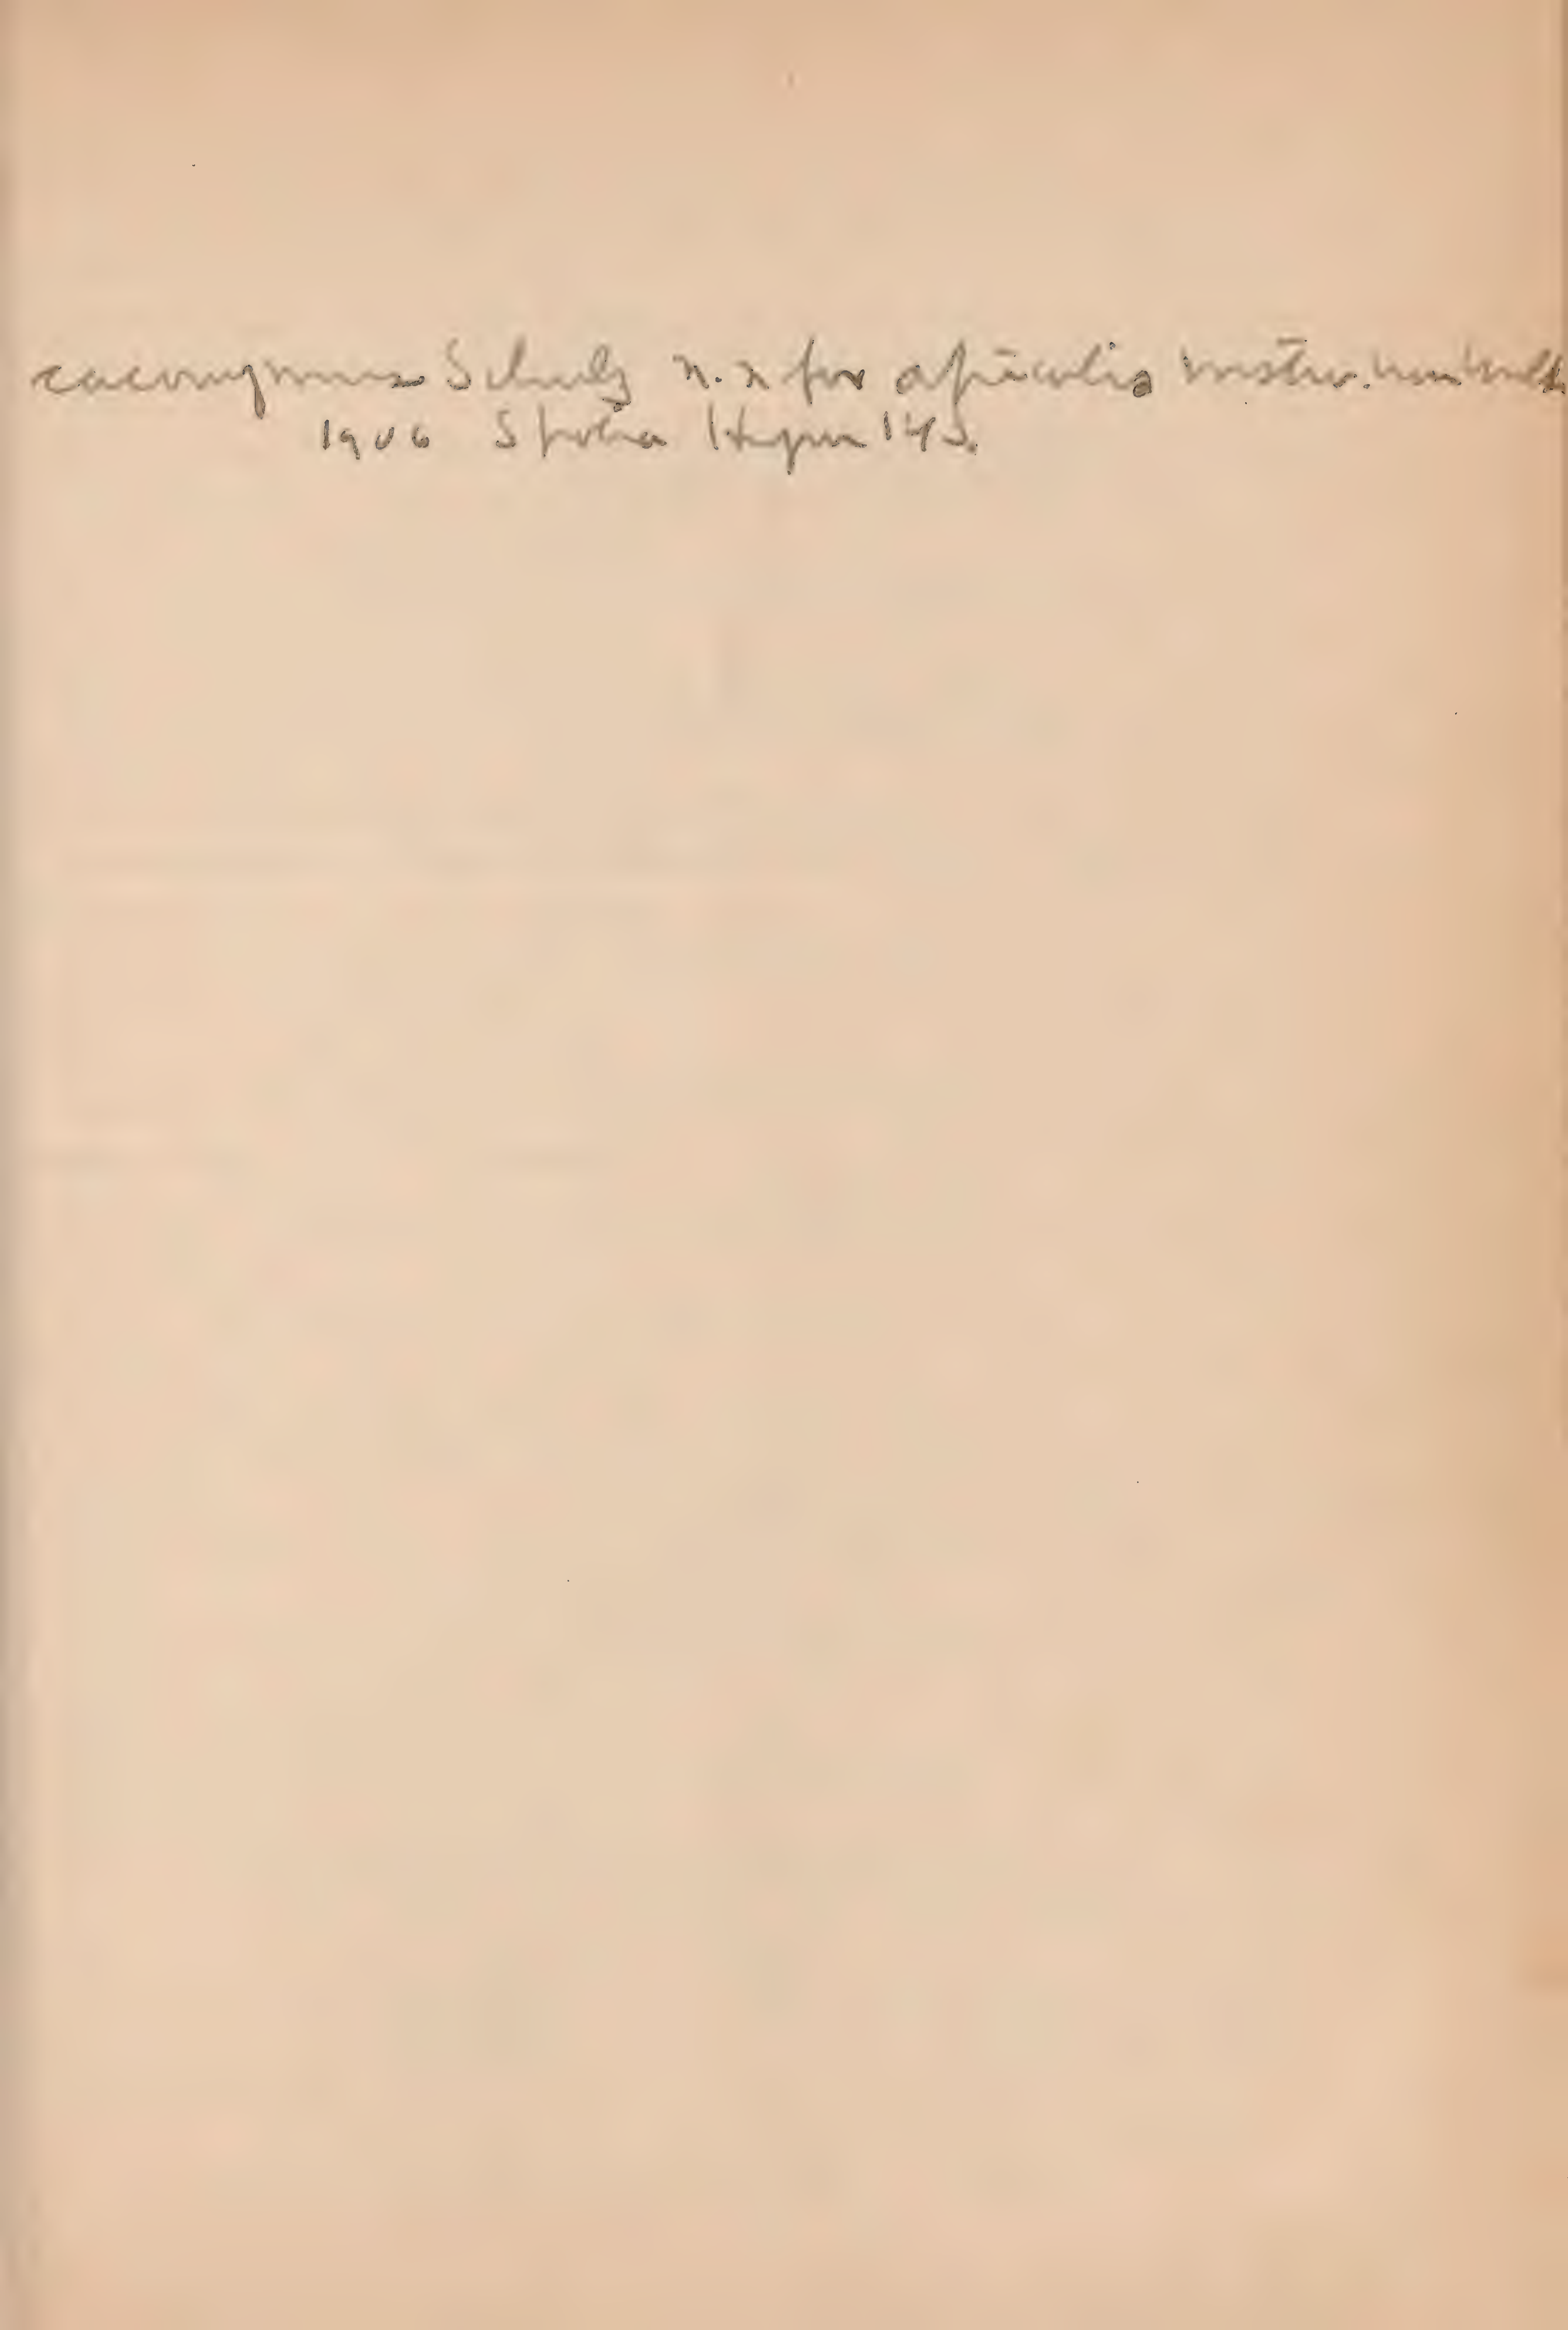 caconymus Schulz n. n for apicalis
1906 Spolia Hym 145.